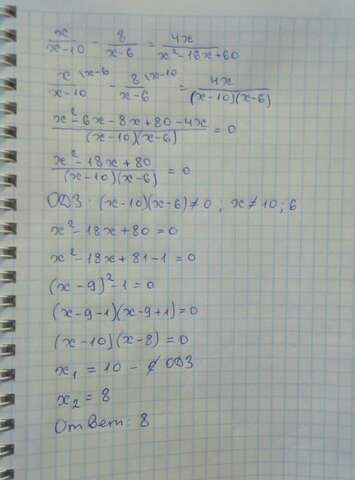 x/(x-10) - 8/(x-6) = 4x/(x²-16x+60)
x\x-6/(x-10) - 8\x-10/(x-6) = 4x/((x-10)(x-6))
(x²-6x-8x+80-4x)/((x-10)(x-6)) = 0
(x²-18x+80)/((x-10)(x-6)) = 0
ОДЗ: (x-10)(x-6)≠0, x≠10;6
x²-18x+80=0
x²-18x+81-1=0
(x-9)²-1=0
(x-9-1)(x-9+1)=0
(x-10)(x-8)=0
x₁ = 10 - ∉ ОДЗ
x₂ = 8
Ответ: 8